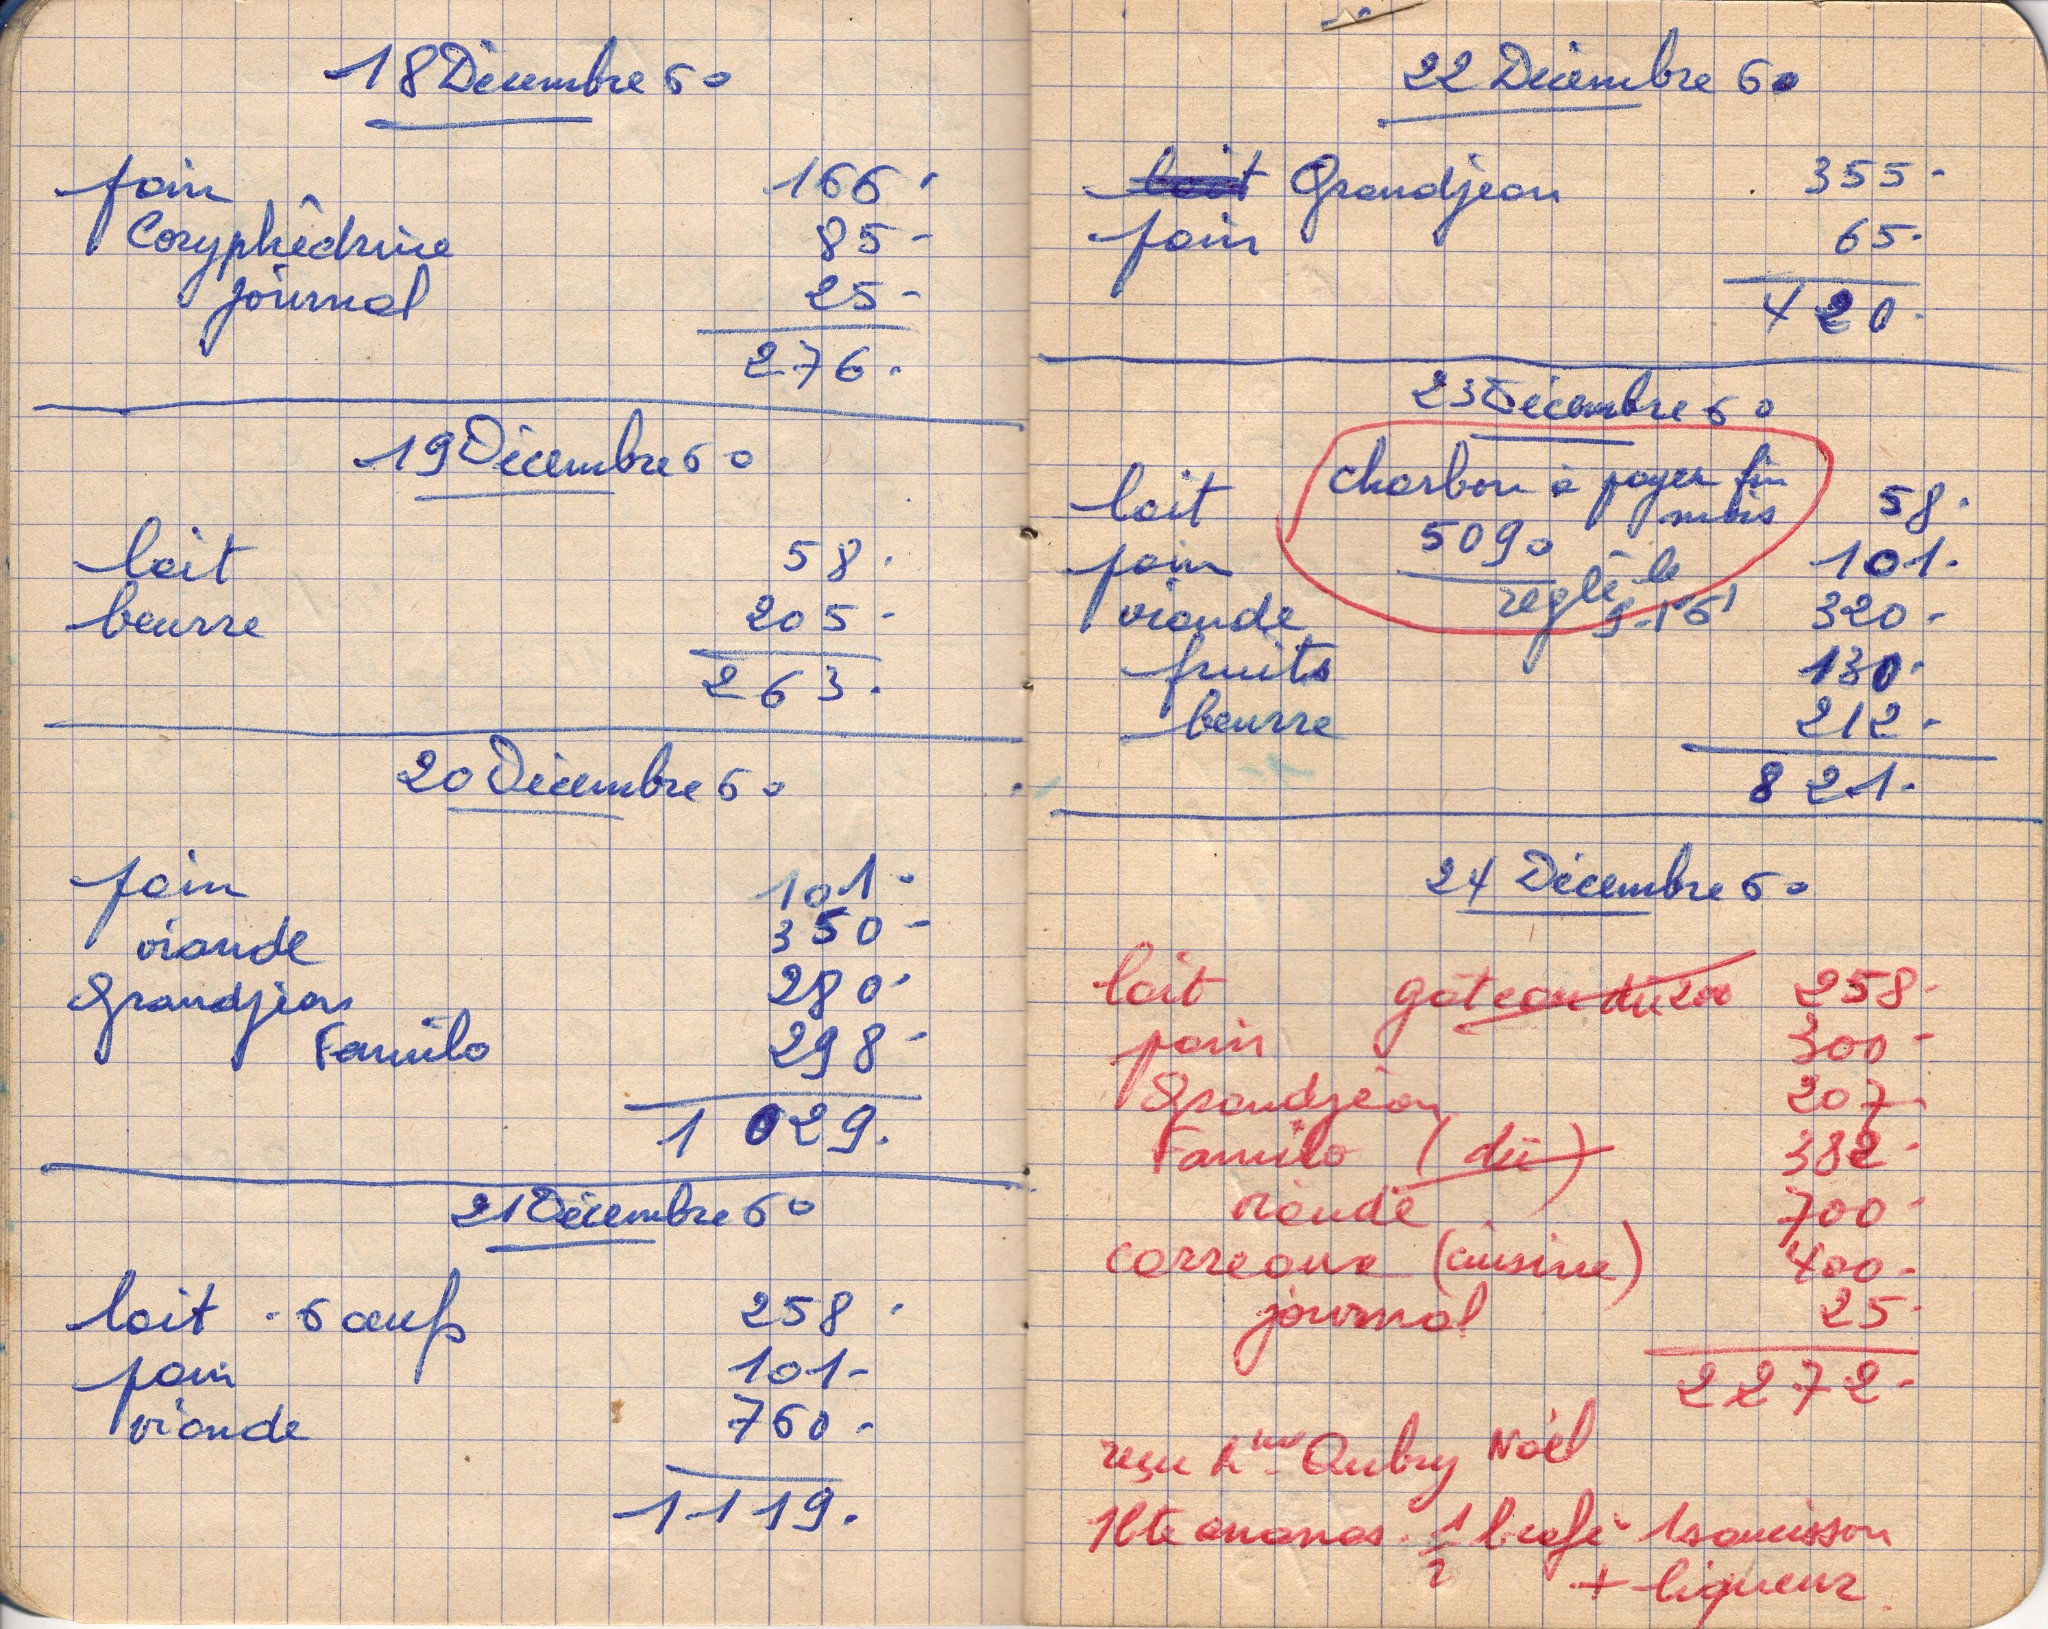 18 Décembre 60
pain 166.
Coryphêdrine 85-
journal 25-
276.
19 Décembre 60
lait 58.
beurre 205-
263.
20 Décembre 60
pain 101-
viande 350-
Grandjean 280-
Familo 298-
1 029.
21 Décembre 60
lait - 6 œufs 258.
pain 101-
viande 760-
1119.
22 Décembre 60
lait Grandjean 355-
pain 65.
420.
23 Décembre 60
charbon à payer fin
mois
lait 58.
5090
pain 101.
réglé le
viande 320-
fruits 130.
beurre 212-
821.
24 Décembre 60
lait gâteau dû 200 258-
pain 300-
Grandjean 207-
Familo (dû) 382-
viande 700-
carreaux (cuisine) 400-
journal 25-
2272-
reçu Mme Aubry Noël
1 bte ananas. 1/2 1 saucisson
+ liqueur